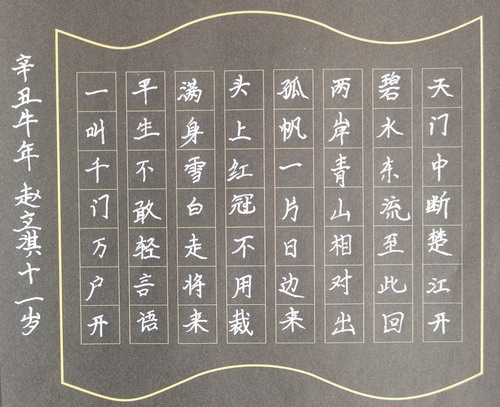 天门中断楚江开
碧水东流至此回
两岸青山相对出
孤帆一片日边来
头上红冠不用裁
满身雪白走将来
平生不敢轻言语
一叫千门万户开
辛丑牛年 赵文祺十一岁